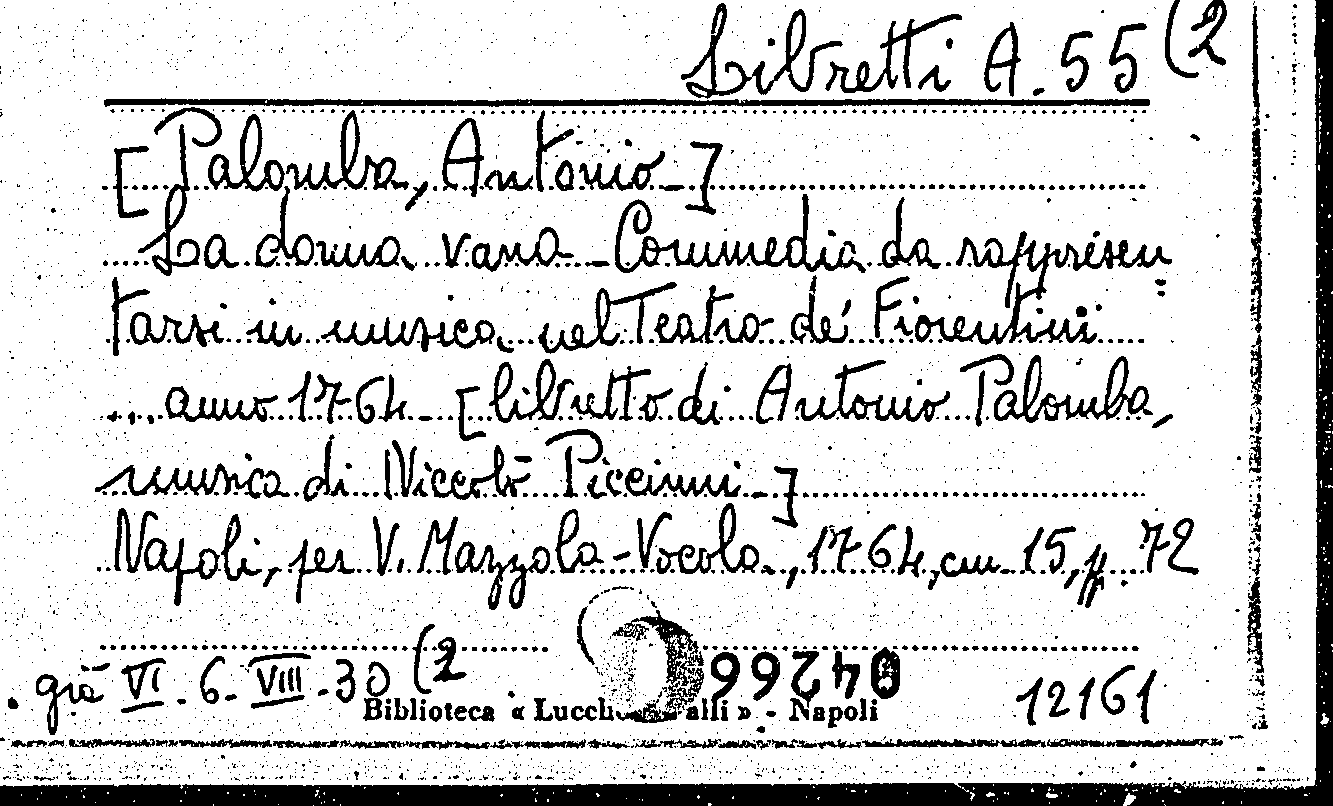 Libretti A. 55 (2
[Palomba, Antonio]
La donna vana - Commedia da rappresen=
tarsi in musica nel Teatro de' Fiorentini
... anno 1764 - [libretto di Antonio Palomba,
musica di Niccolò Piccinni]
Napoli, per V. Mazzola-Vocola, 1764, cm 15, pp. 72
già VI. 6. VIII. 30 (2
04266
12161
Biblioteca « alli » - Napoli